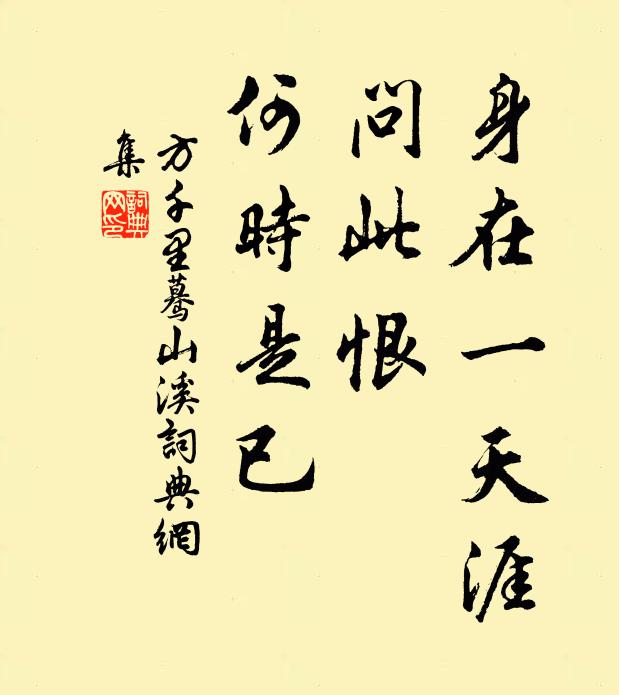 身在一天涯
問此恨
何時是已
方千里驀山溪詞典網
集
詞典
网印